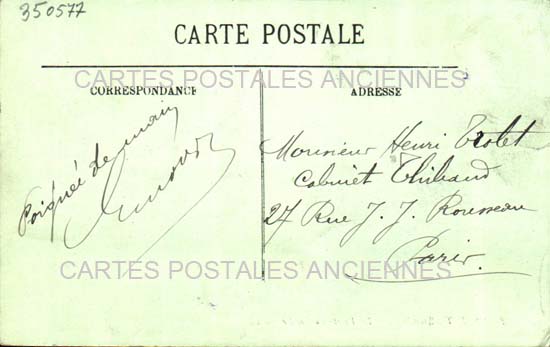 350577
CARTE POSTALE
CARTES POSTALES ANCIENNES
CORRESPONDANCE
ADRESSE
Poignée de main
Monsieur Henri
Cabinet Thibaud
27 Rue J. J. Rousseau
Paris.
CARTES POSTALES ANCIENNES